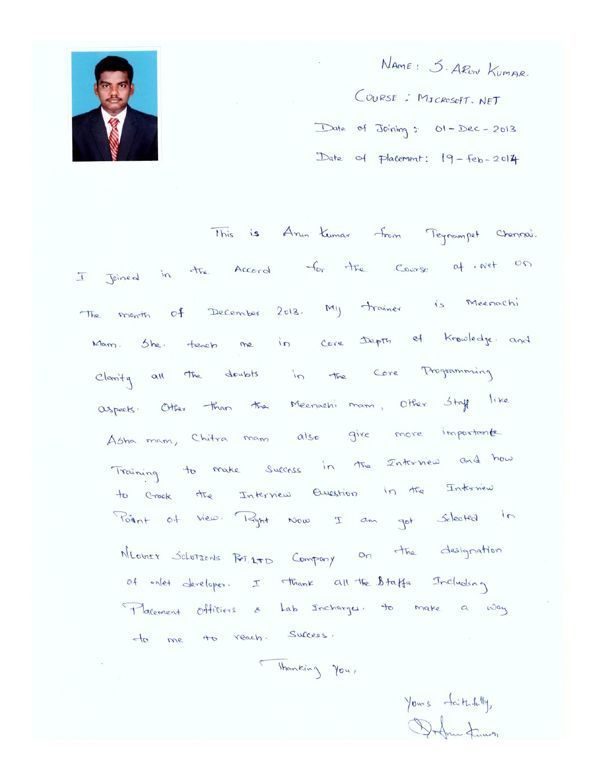 NAME: S. ARUN KUMAR.
COURSE: MICROSOFT.NET
Date of Joining: 01-Dec-2013
Date of placement: 19-Feb-2014
This is Arun Kumar from Teynampet Chennai.
I Joined in the Accord for the Course of .net on
The month of December 2013. My trainer is Meenachi
Mam. She teach me in Core Depth of Knowledge. and
Clarity all the doubts in the Core Programming
aspects. Other than the Meenachi mam, Other Staff like
Asha mam, Chitra mam also give more importante
Training to make Success in the Interview and how
to Crack the Interview Question in the Interview
Point of view. Right Now I am got Selected in
SOLUTIONS PVT.LTD Company on the designation
of .net developer. I thank all the Staffs Including
Placement officers & Lab Incharges. to make a way
to me to reach. Success.
Thanking You,
Yours faithfully,